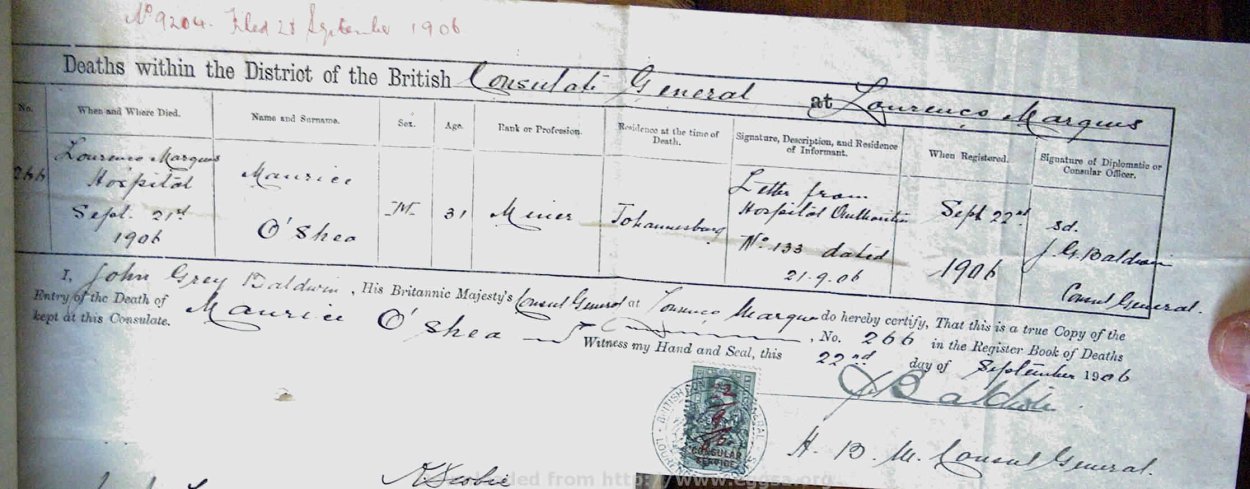 No 9204. Filed 28 September 1906
Deaths within the District of the British Consulate General at Lourenço Marques
No. When and Where Died. Name and Surname. Sex. Age. Rank or Profession. Residence at the time of Death. Signature, Description, and Residence of Informant. When Registered. Signature of Diplomatic or Consular Officer.
266
Lourenco Marques
Hospital
Sept. 21st
1906
Maurice
O'Shea
M
31
Miner
Johannesburg
Letter from
Hospital Authorities
No 133 dated
21-9.06
Sept 22nd
1906
sd.
J. G. Baldwin
Consul General.
I, John Grey Baldwin, His Britannic Majesty's Consul General at Lourenço Marques do hereby certify, That this is a true Copy of the
Entry of the Death of Maurice O'Shea, No. 266 in the Register Book of Deaths
kept at this Consulate. Witness my Hand and Seal, this 22nd day of September 1906
J Baldwin
H. B. M. Consul General.
CONSULAR
SERVICE
ded from http://www.eggsa.org